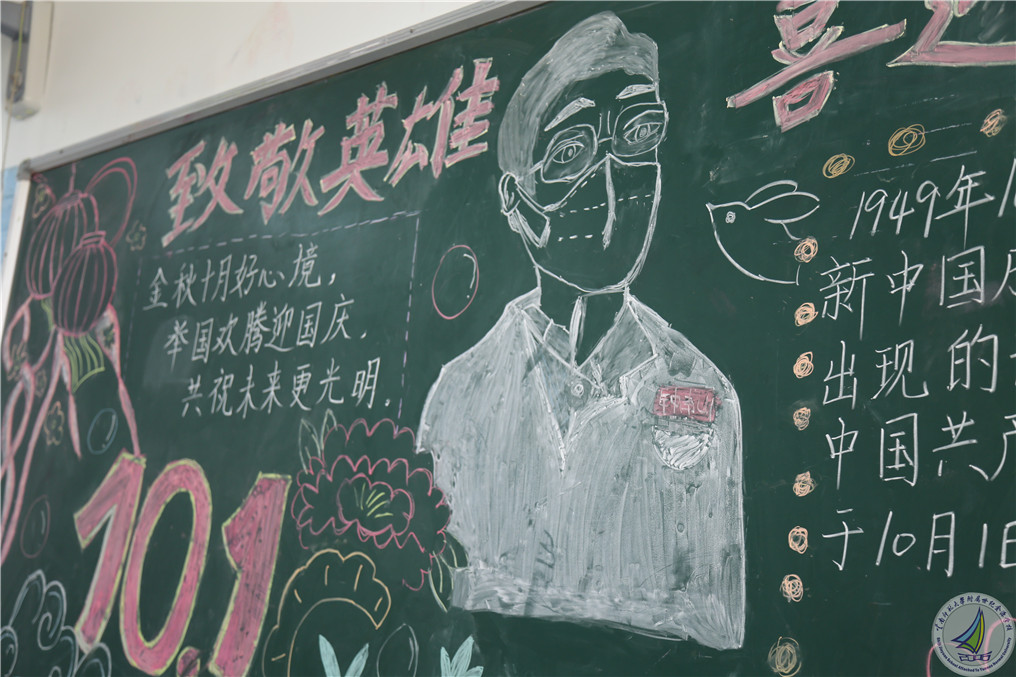 致敬英雄
金秋十月好心境，
举国欢腾迎国庆，
共祝未来更光明。
10.1
喜迎
1949年1
新中国
出现的
中国共产
于10月1日